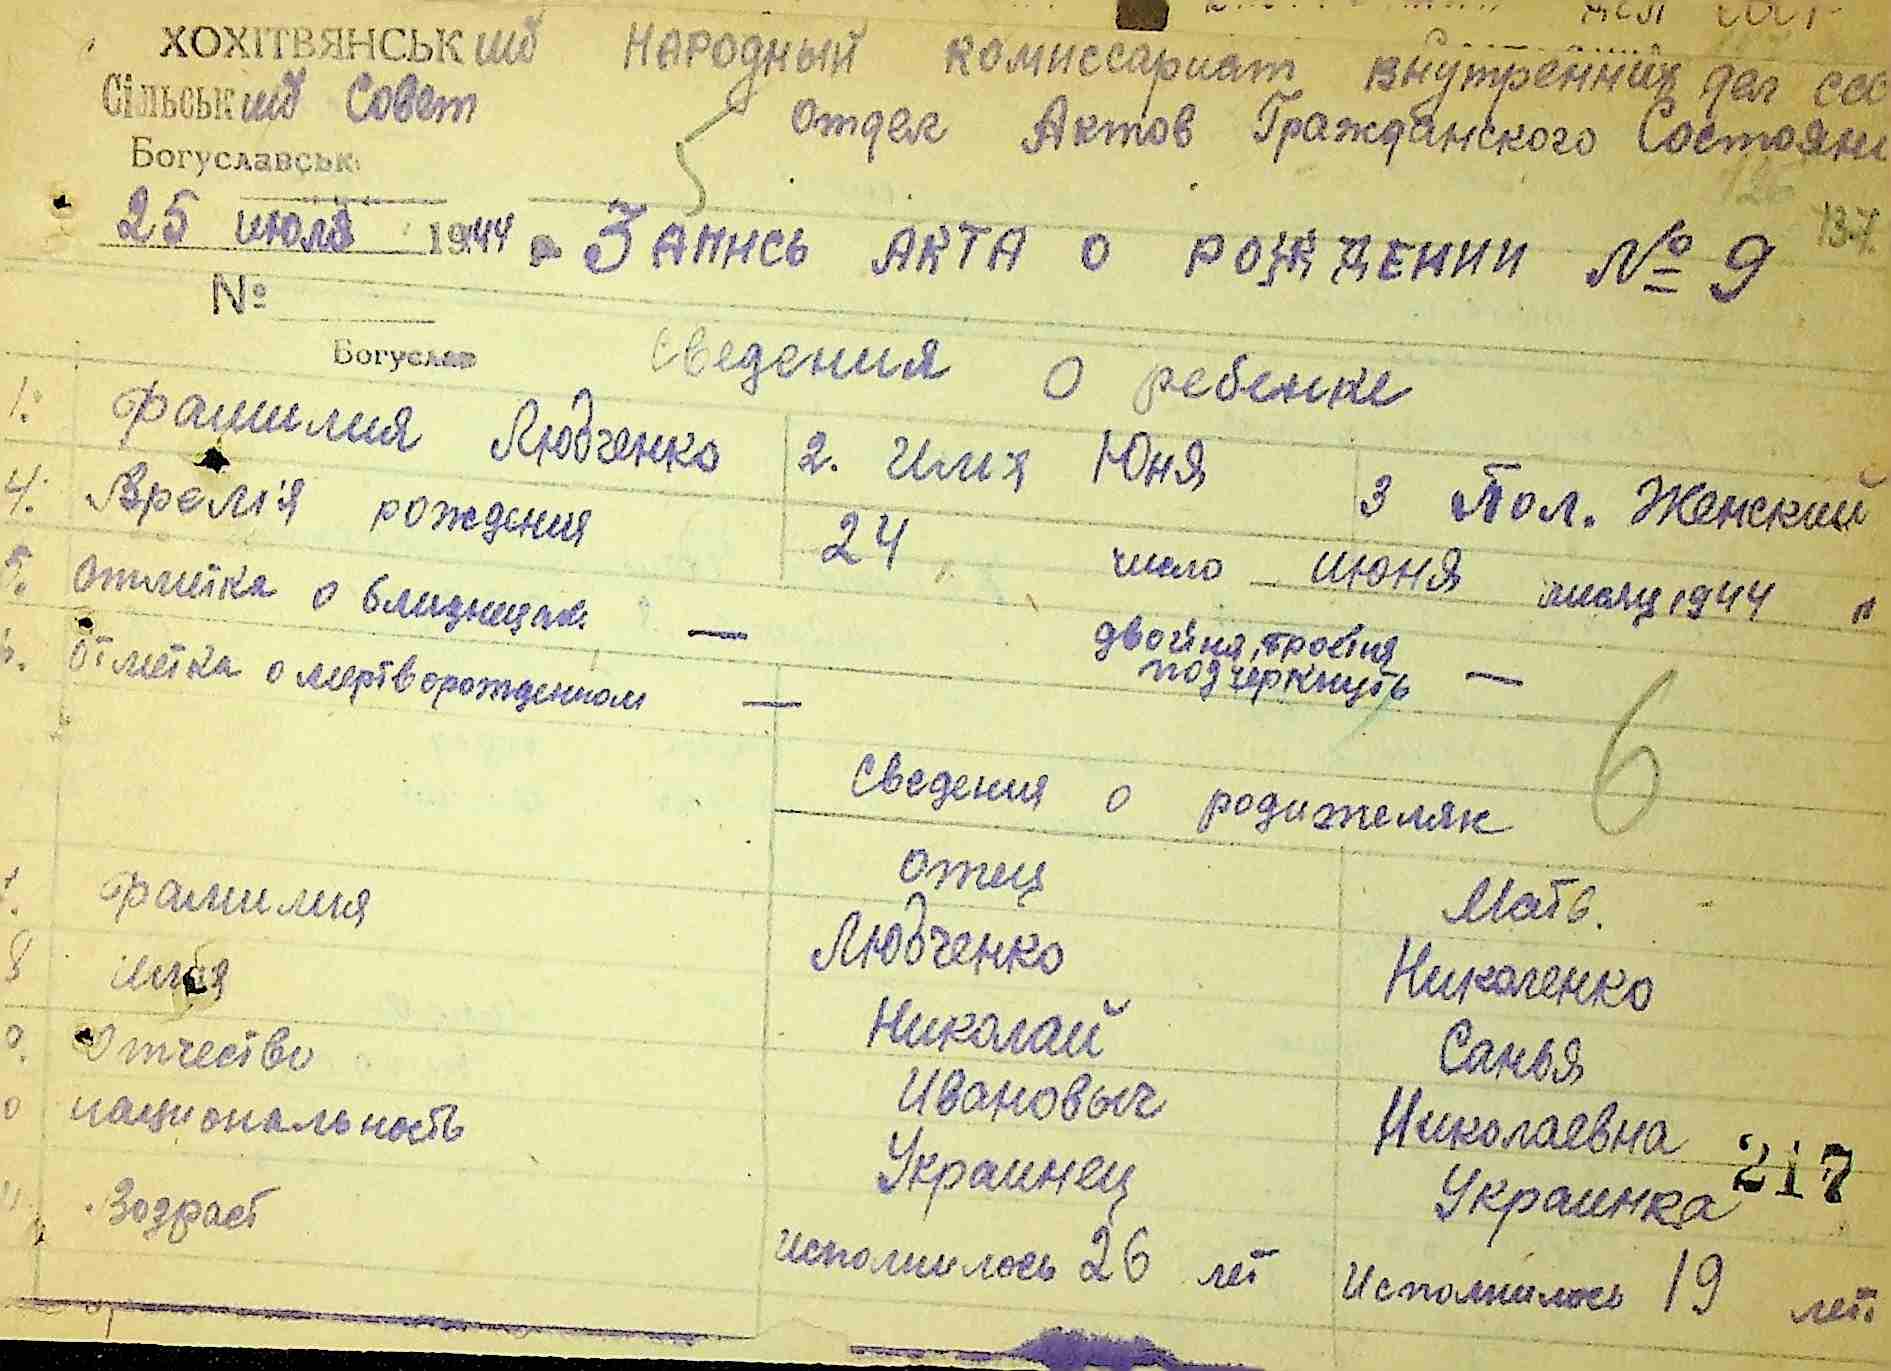 ХОХІТВЯНСЬКий Народный комиссариат внутренних дел ССС
Сільський Совет Отдел Актов Гражданского Состояни
Богуславськ
126
137
25 июля 1944 Запись акта о рождении № 9
№
Богуслав
Сведения о ребенке
1. Фамилия Людченко 2. Имя Юня 3 Пол. Женский
4. Время рождения 24 число июня месяц 1944
5. Отметка о близнецах. — двойня, тройня
подчеркнуть —
6. Отметка о мертворожденном —
6
Сведения о родителях
Отец Мать.
Фамилия Людченко Николенко
8 Имя Николай Санья
Отчество Ивановыч Николаевна
национальность Украинец Украинка
217
Возраст исполнилось 26 лет Исполнилось 19 лет